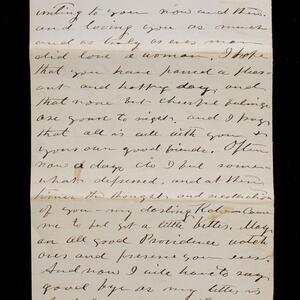 writing to you now and then.
and loving you as much
and as truly as ever man
did love a woman. I hope
that you have passed a pleas
ant and happy day, and
that none but cheerful
are yours to night, and I pray
that all is well with you &
yours our good friends. Often
now a days do I feel some
what depressed. and at them
times the thoughts and recollection
of you - my darling
me to feel got a little better. May
an all good Providence watch
over and preserve you ever.
And now I will have to say
good bye as my letter is